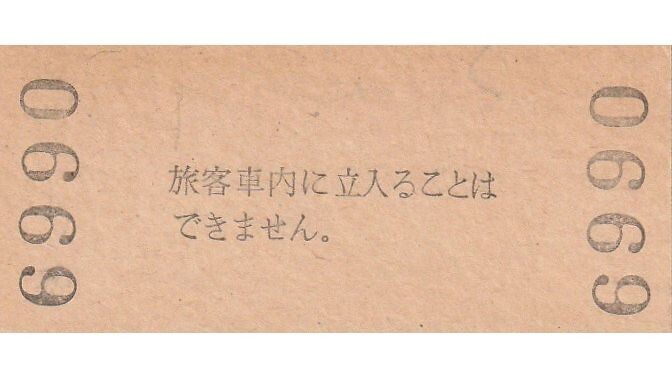 6990
旅客車内に立入ることは
できません。
6990